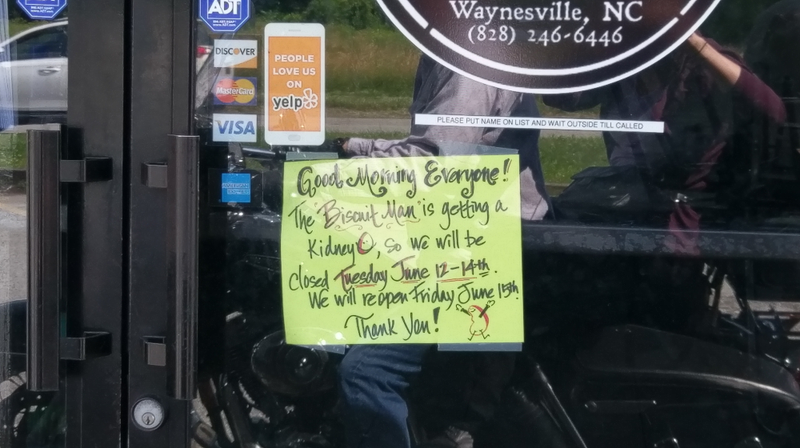 ADT
ADT
Waynesville, NC
(828) 246-6446
DISCOVER
MasterCard
VISA
PEOPLE
LOVE US
ON
yelp
PLEASE PUT NAME ON LIST AND WAIT OUTSIDE TILL CALLED
Good Morning Everyone!
The "Biscuit Man" is getting a
Kidney, so we will be
closed Tuesday June 12-14th.
We will reopen Friday June 15th.
Thank You!